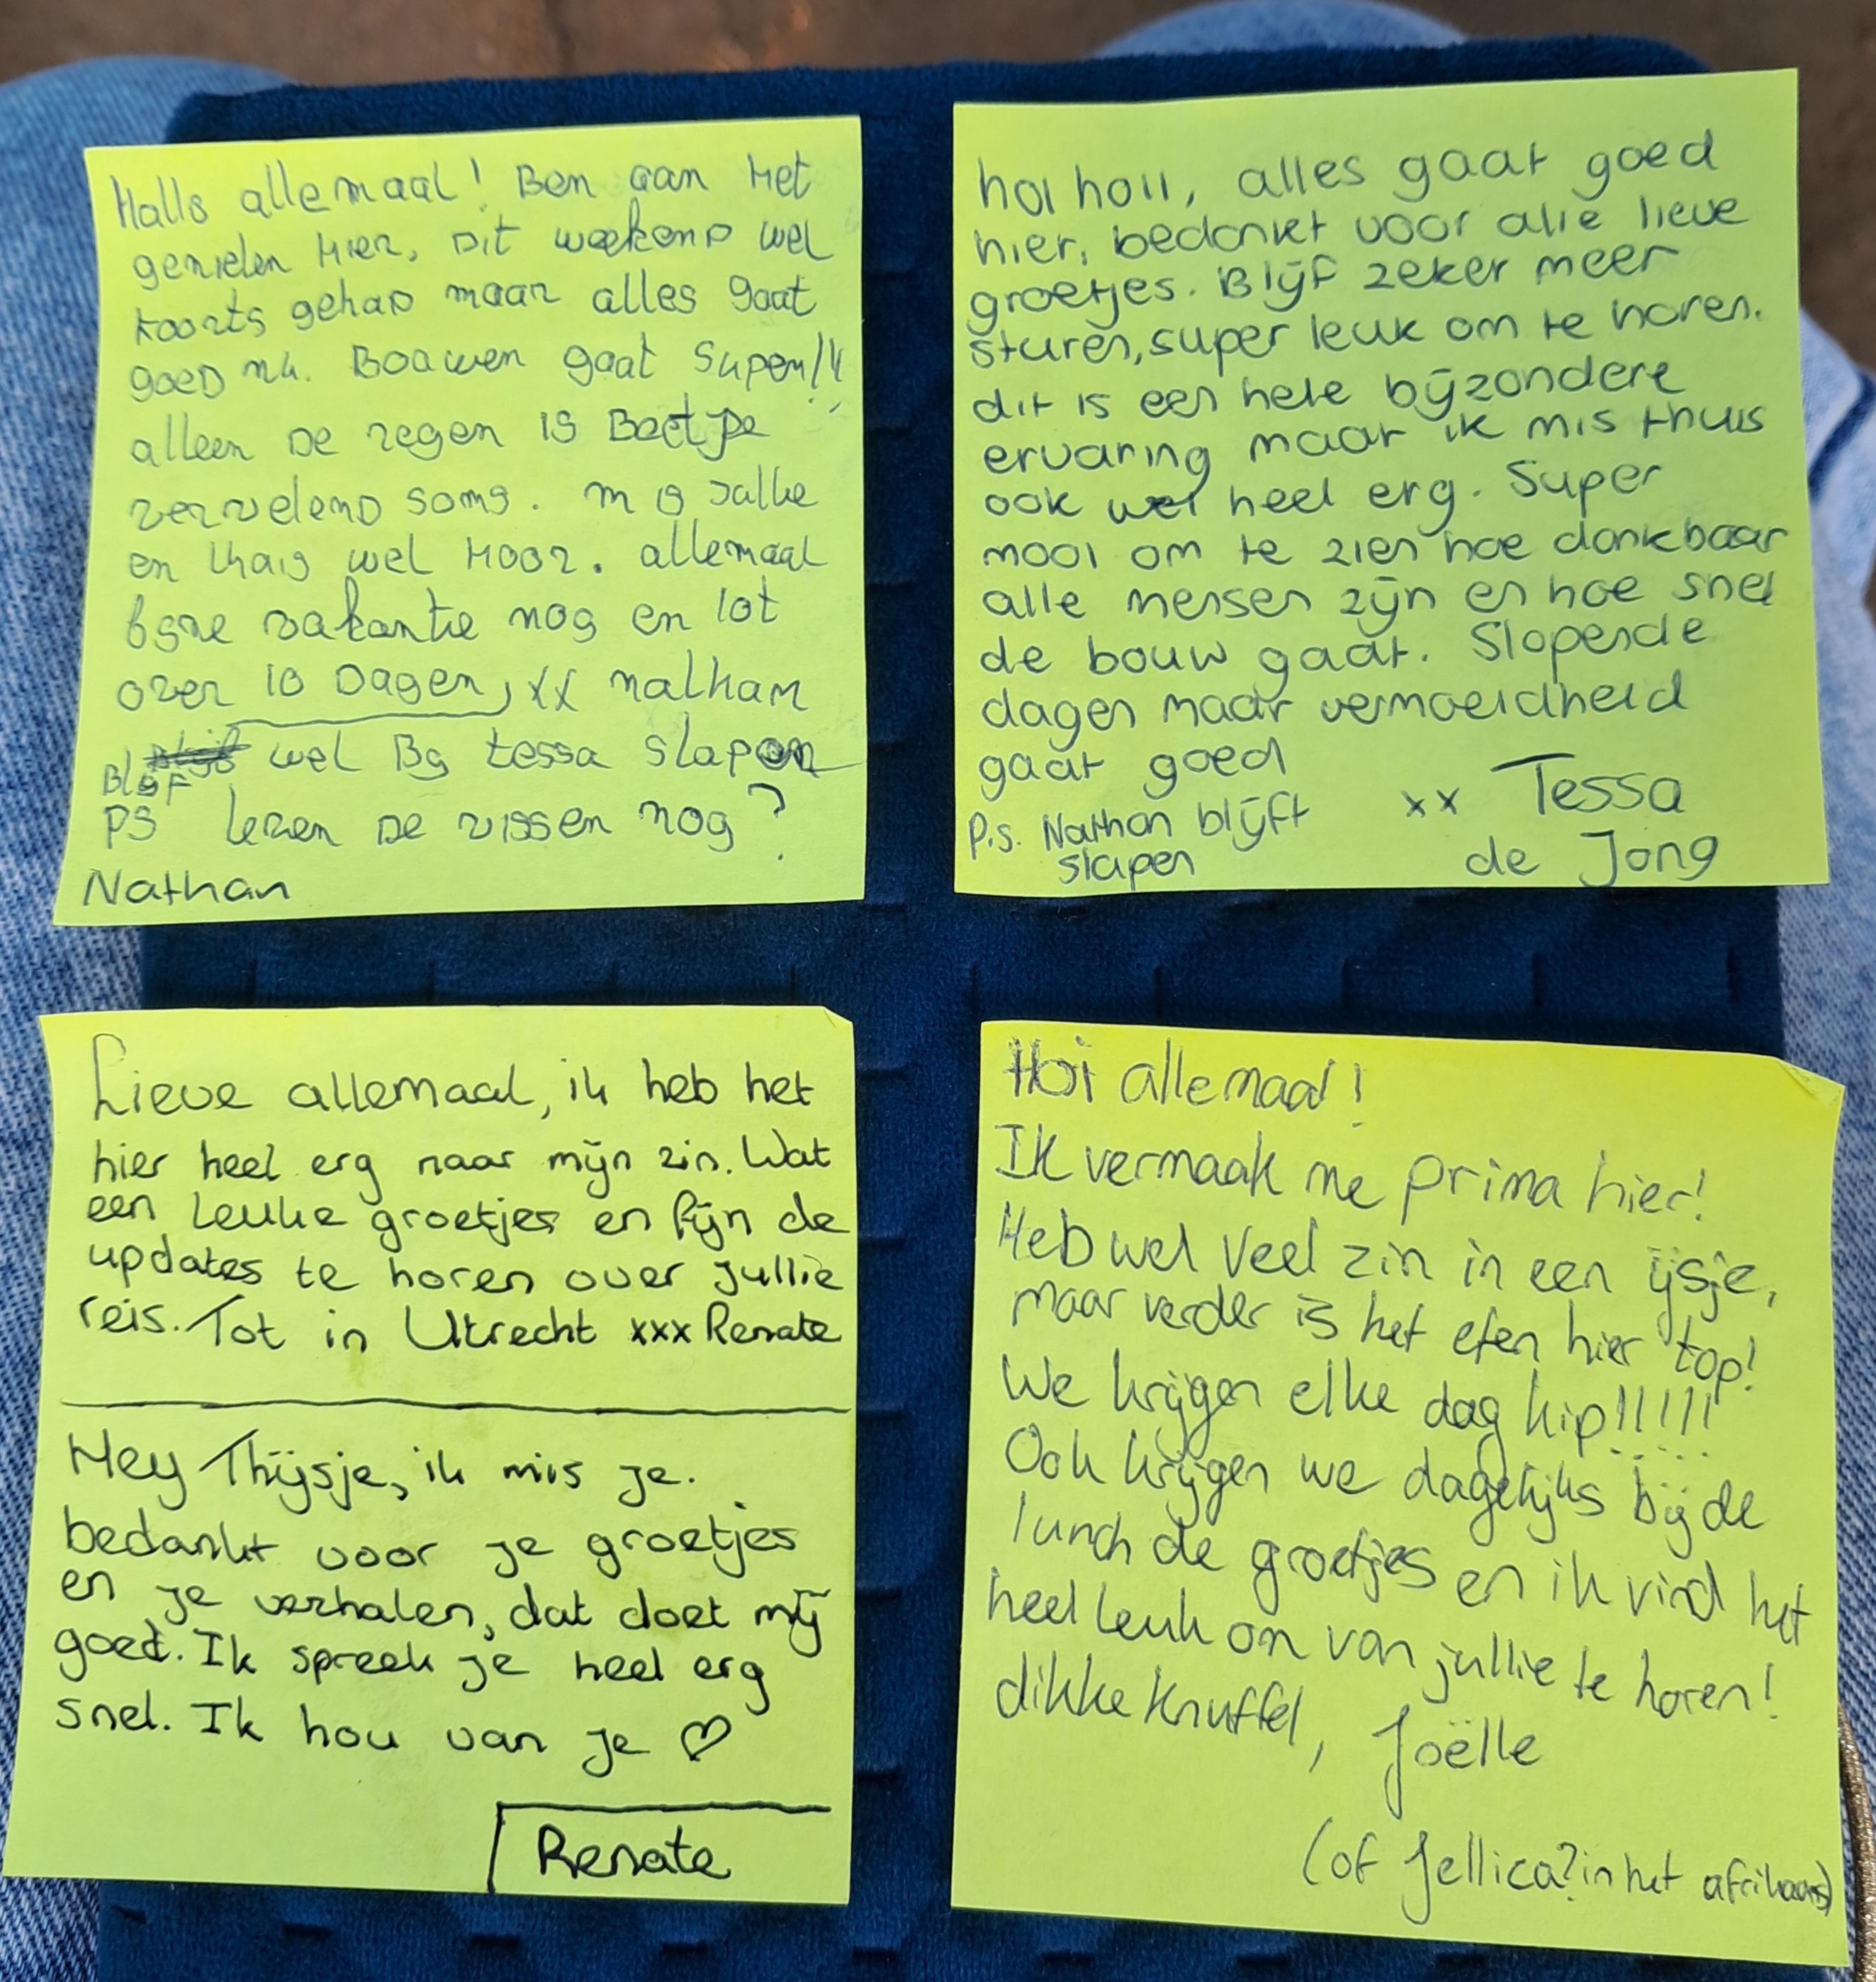 Hallo allemaal! Ben aan Het
genieten Hier, Dit weekend wel
koorts gehad maar alles gaat
goed nu. Bouwen gaat Super!!!
alleen De regen is Beetje
vervelend soms. mis Jullie
en thuis wel Hoor. allemaal
fijne vakantie nog en tot
over 10 Dagen, xx nathan
Blijf wel Bij tessa slapen
PS leven De vissen nog?
Nathan
hoi hoii, alles gaat goed
hier, bedankt voor alle lieve
groetjes. Blijf zeker meer
sturen, super leuk om te horen.
dit is een hele bijzondere
ervaring maar ik mis thuis
ook wel heel erg. Super
mooi om te zien hoe dankbaar
alle mensen zijn en hoe snel
de bouw gaat. Slopende
dagen maar vermoeidheid
gaat goed
xx Tessa
de Jong
P.s. Nathan blijft
slapen
Lieve allemaal, ik heb het
hier heel erg naar mijn zin. Wat
een leuke groetjes en fijn de
updates te horen over jullie
reis. Tot in Utrecht xxx Renate
Hey Thijsje, ik mis je.
bedankt voor je groetjes
en je verhalen, dat doet mij
goed. Ik spreek je heel erg
snel. Ik hou van je ♡
Renate
Hoi allemaal!
Ik vermaak me prima hier!
Heb wel veel zin in een ijsje,
maar verder is het eten hier top!
We krijgen elke dag kip!!!!!!
Ook krijgen we dagelijks bij de
lunch de groetjes en ik vind het
heel leuk om van jullie te horen!
dikke knuffel, Joëlle
(of Jellica? in het afrikaans)